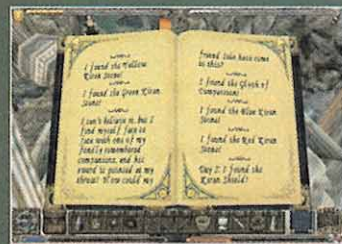 I found the Yellow
Kiran Stone!
I found the Green Kiran
Stone!
I can't believe it, but I
find myself face to
face with one of my
fondly remembered
companions, and his
sword is pointed at my
throat! How could my
friend Solo have come
to this?
I found the Glyph of
Companions
I found the Blue Kiran
Stone!
I found the Red Kiran
Stone!
Day 2: I found the
Kiran Shield!